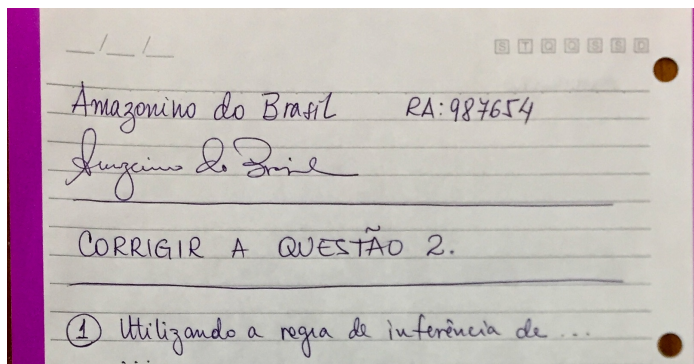 __/__/__
S T Q Q S S D
Amazonino do Brasil RA: 987654
Amazonino do Brasil
CORRIGIR A QUESTÃO 2.
1 Utilizando a regra de inferência de ...
...